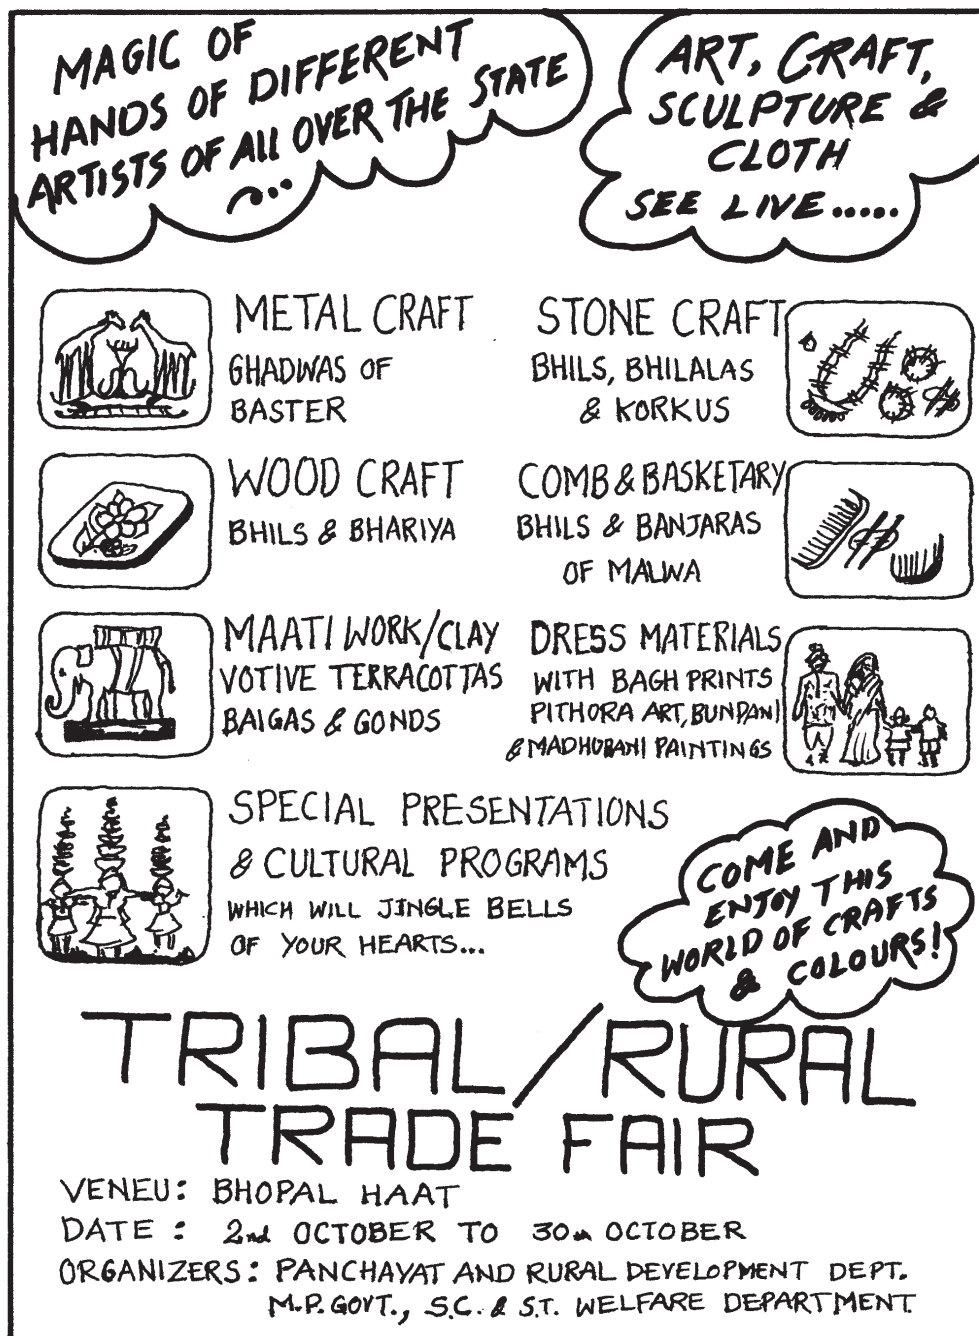 MAGIC OF
HANDS OF DIFFERENT
ARTISTS OF All OVER THE STATE
ART, CRAFT,
SCULPTURE &
CLOTH
SEE LIVE.....
METAL CRAFT
GHADWAS OF
BASTER
STONE CRAFT
BHILS, BHILALAS
& KORKUS
WOOD CRAFT
BHILS & BHARIYA
COMB & BASKETARY
BHILS & BANJARAS
OF MALWA
MAATI WORK/CLAY
VOTIVE TERRACOTTAS
BAIGAS & GONDS
DRESS MATERIALS
WITH BAGH PRINTS
PITHORA ART, BUNDANI
& MADHUBANI PAINTINGS
SPECIAL PRESENTATIONS
& CULTURAL PROGRAMS
WHICH WILL JINGLE BELLS
OF YOUR HEARTS...
COME AND
ENJOY THIS
WORLD OF CRAFTS
& COLOURS!
TRIBAL/RURAL
TRADE FAIR
VENEU: BHOPAL HAAT
DATE : 2nd OCTOBER TO 30th OCTOBER
ORGANIZERS: PANCHAYAT AND RURAL DEVELOPMENT DEPT.
M.P. GOVT., S.C. & S.T. WELFARE DEPARTMENT